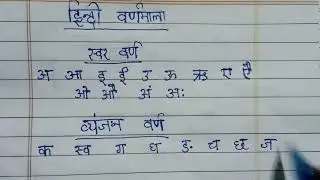 हिन्दी वर्णमाला
स्वर वर्ण
अ आ इ ई उ ऊ ऋ ए ऐ
ओ औ अं अः
व्यंजन वर्ण
क ख ग घ ङ च छ ज